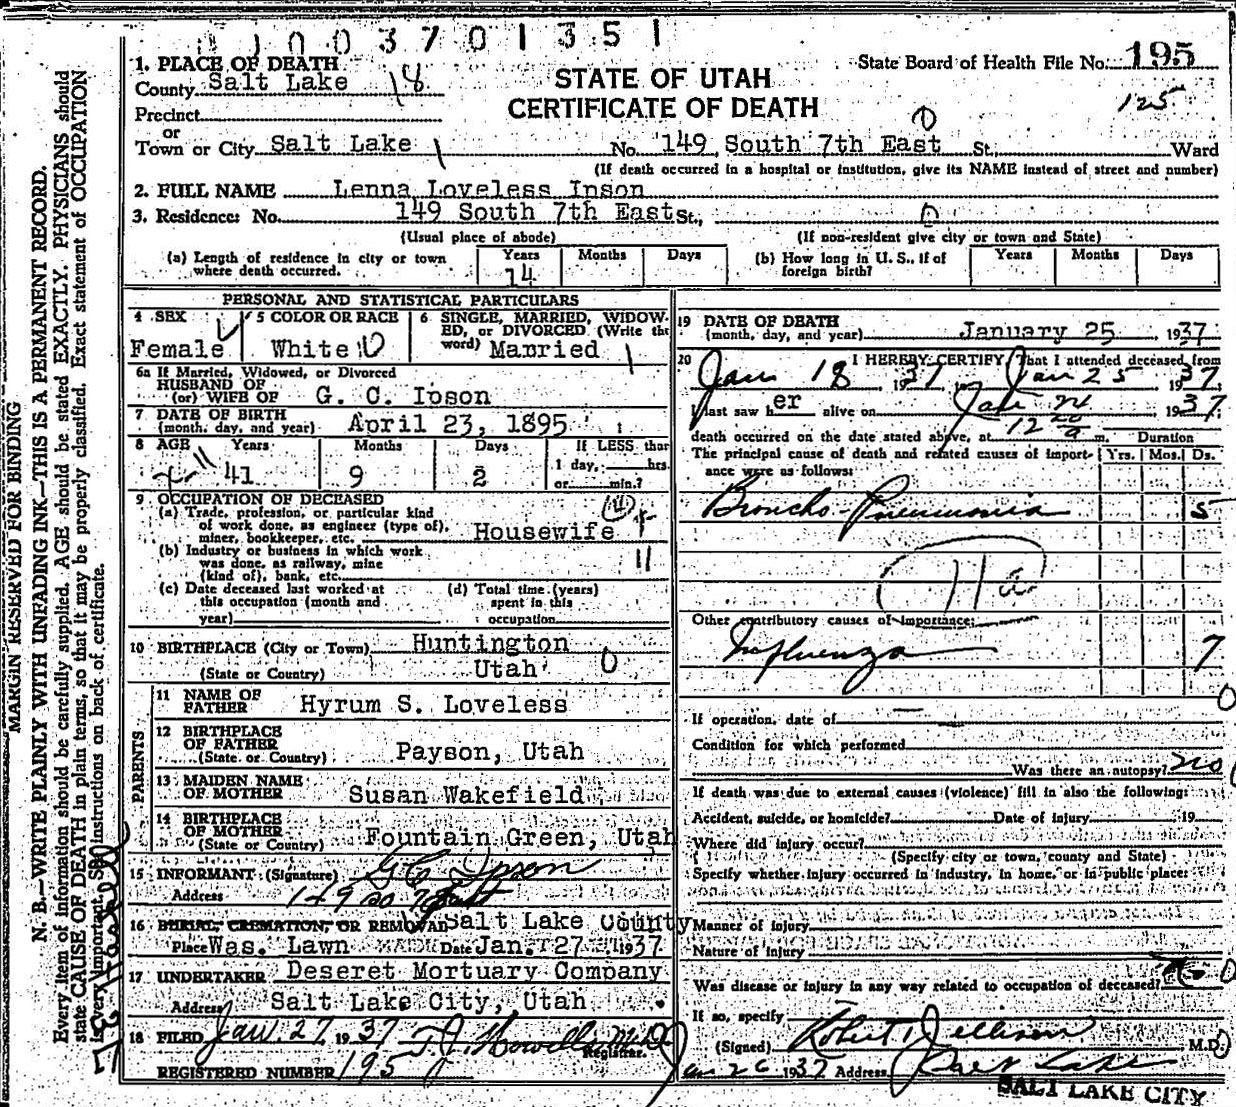 1003701351
1. PLACE OF DEATH
County Salt Lake 18
STATE OF UTAH
CERTIFICATE OF DEATH
State Board of Health File No. 195
125
Precinct
or
Town or City Salt Lake 1 No. 149 South 7th East St. Ward
(If death occurred in a hospital or institution, give its NAME instead of street and number)
2. FULL NAME Lenna Loveless Ipson
3. Residence: No. 149 South 7th East St.,
(Usual place of abode) (If non-resident give city or town and State)
(a) Length of residence in city or town where death occurred. Years 14 Months Days
(b) How long in U. S., if of foreign birth? Years Months Days
PERSONAL AND STATISTICAL PARTICULARS
4 SEX Female
5 COLOR OR RACE White
6 SINGLE, MARRIED, WIDOWED, or DIVORCED (Write the word) Married
6a If Married, Widowed, or Divorced
HUSBAND OF
(or) WIFE OF G. C. Ipson
7 DATE OF BIRTH
(month, day, and year) April 23, 1895
8 AGE Years 41 Months 9 Days 2 If LESS than 1 day, hrs. or min.?
9 OCCUPATION OF DECEASED
(a) Trade, profession, or particular kind of work done, as engineer (type of), miner, bookkeeper, etc. Housewife
(b) Industry or business in which work was done, as railway, mine (kind of), bank, etc. 11
(c) Date deceased last worked at this occupation (month and year)
(d) Total time (years) spent in this occupation
10 BIRTHPLACE (City or Town) Huntington
(State or Country) Utah
PARENTS
11 NAME OF FATHER Hyrum S. Loveless
12 BIRTHPLACE OF FATHER (State or Country) Payson, Utah
13 MAIDEN NAME OF MOTHER Susan Wakefield
14 BIRTHPLACE OF MOTHER (State or Country) Fountain Green, Utah
15 INFORMANT (Signature) G C Ipson
Address 149 So 7 East
16 BURIAL, CREMATION, OR REMOVAL Salt Lake County
Place Was. Lawn Date Jan. 27 1937
17 UNDERTAKER Deseret Mortuary Company
Address Salt Lake City, Utah
18 FILED Jan. 27, 1937 T J Howells M.D.
Registrar.
REGISTERED NUMBER 195
19 DATE OF DEATH
(month, day, and year) January 25 1937
20 I HEREBY CERTIFY, That I attended deceased from
Jan 18, 1937, to Jan 25 1937;
I last saw her alive on Jan 24 1937
death occurred on the date stated above, at 12 20 a m. Duration
The principal cause of death and related causes of importance were as follows: Yrs. Mos. Ds.
Broncho-Pneumonia 5
11a
Other contributory causes of importance:
Influenza 7
If operation, date of
Condition for which performed
Was there an autopsy? no
If death was due to external causes (violence) fill in also the following:
Accident, suicide, or homicide? Date of injury 19
Where did injury occur?
(Specify city or town, county and State)
Specify whether injury occurred in industry, in home, or in public place:
Manner of injury
Nature of injury
Was disease or injury in any way related to occupation of deceased? No
If so, specify
(Signed) Robert Jellison M.D.
Jan 26 1937 Address Salt Lake
SALT LAKE CITY
MARGIN RESERVED FOR BINDING
N. B.—WRITE PLAINLY WITH UNFADING INK—THIS IS A PERMANENT RECORD.
Every item of information should be carefully supplied. AGE should be stated EXACTLY. PHYSICIANS should
state CAUSE OF DEATH in plain terms, so that it may be properly classified. Exact statement of OCCUPATION
is very important. See instructions on back of certificate.